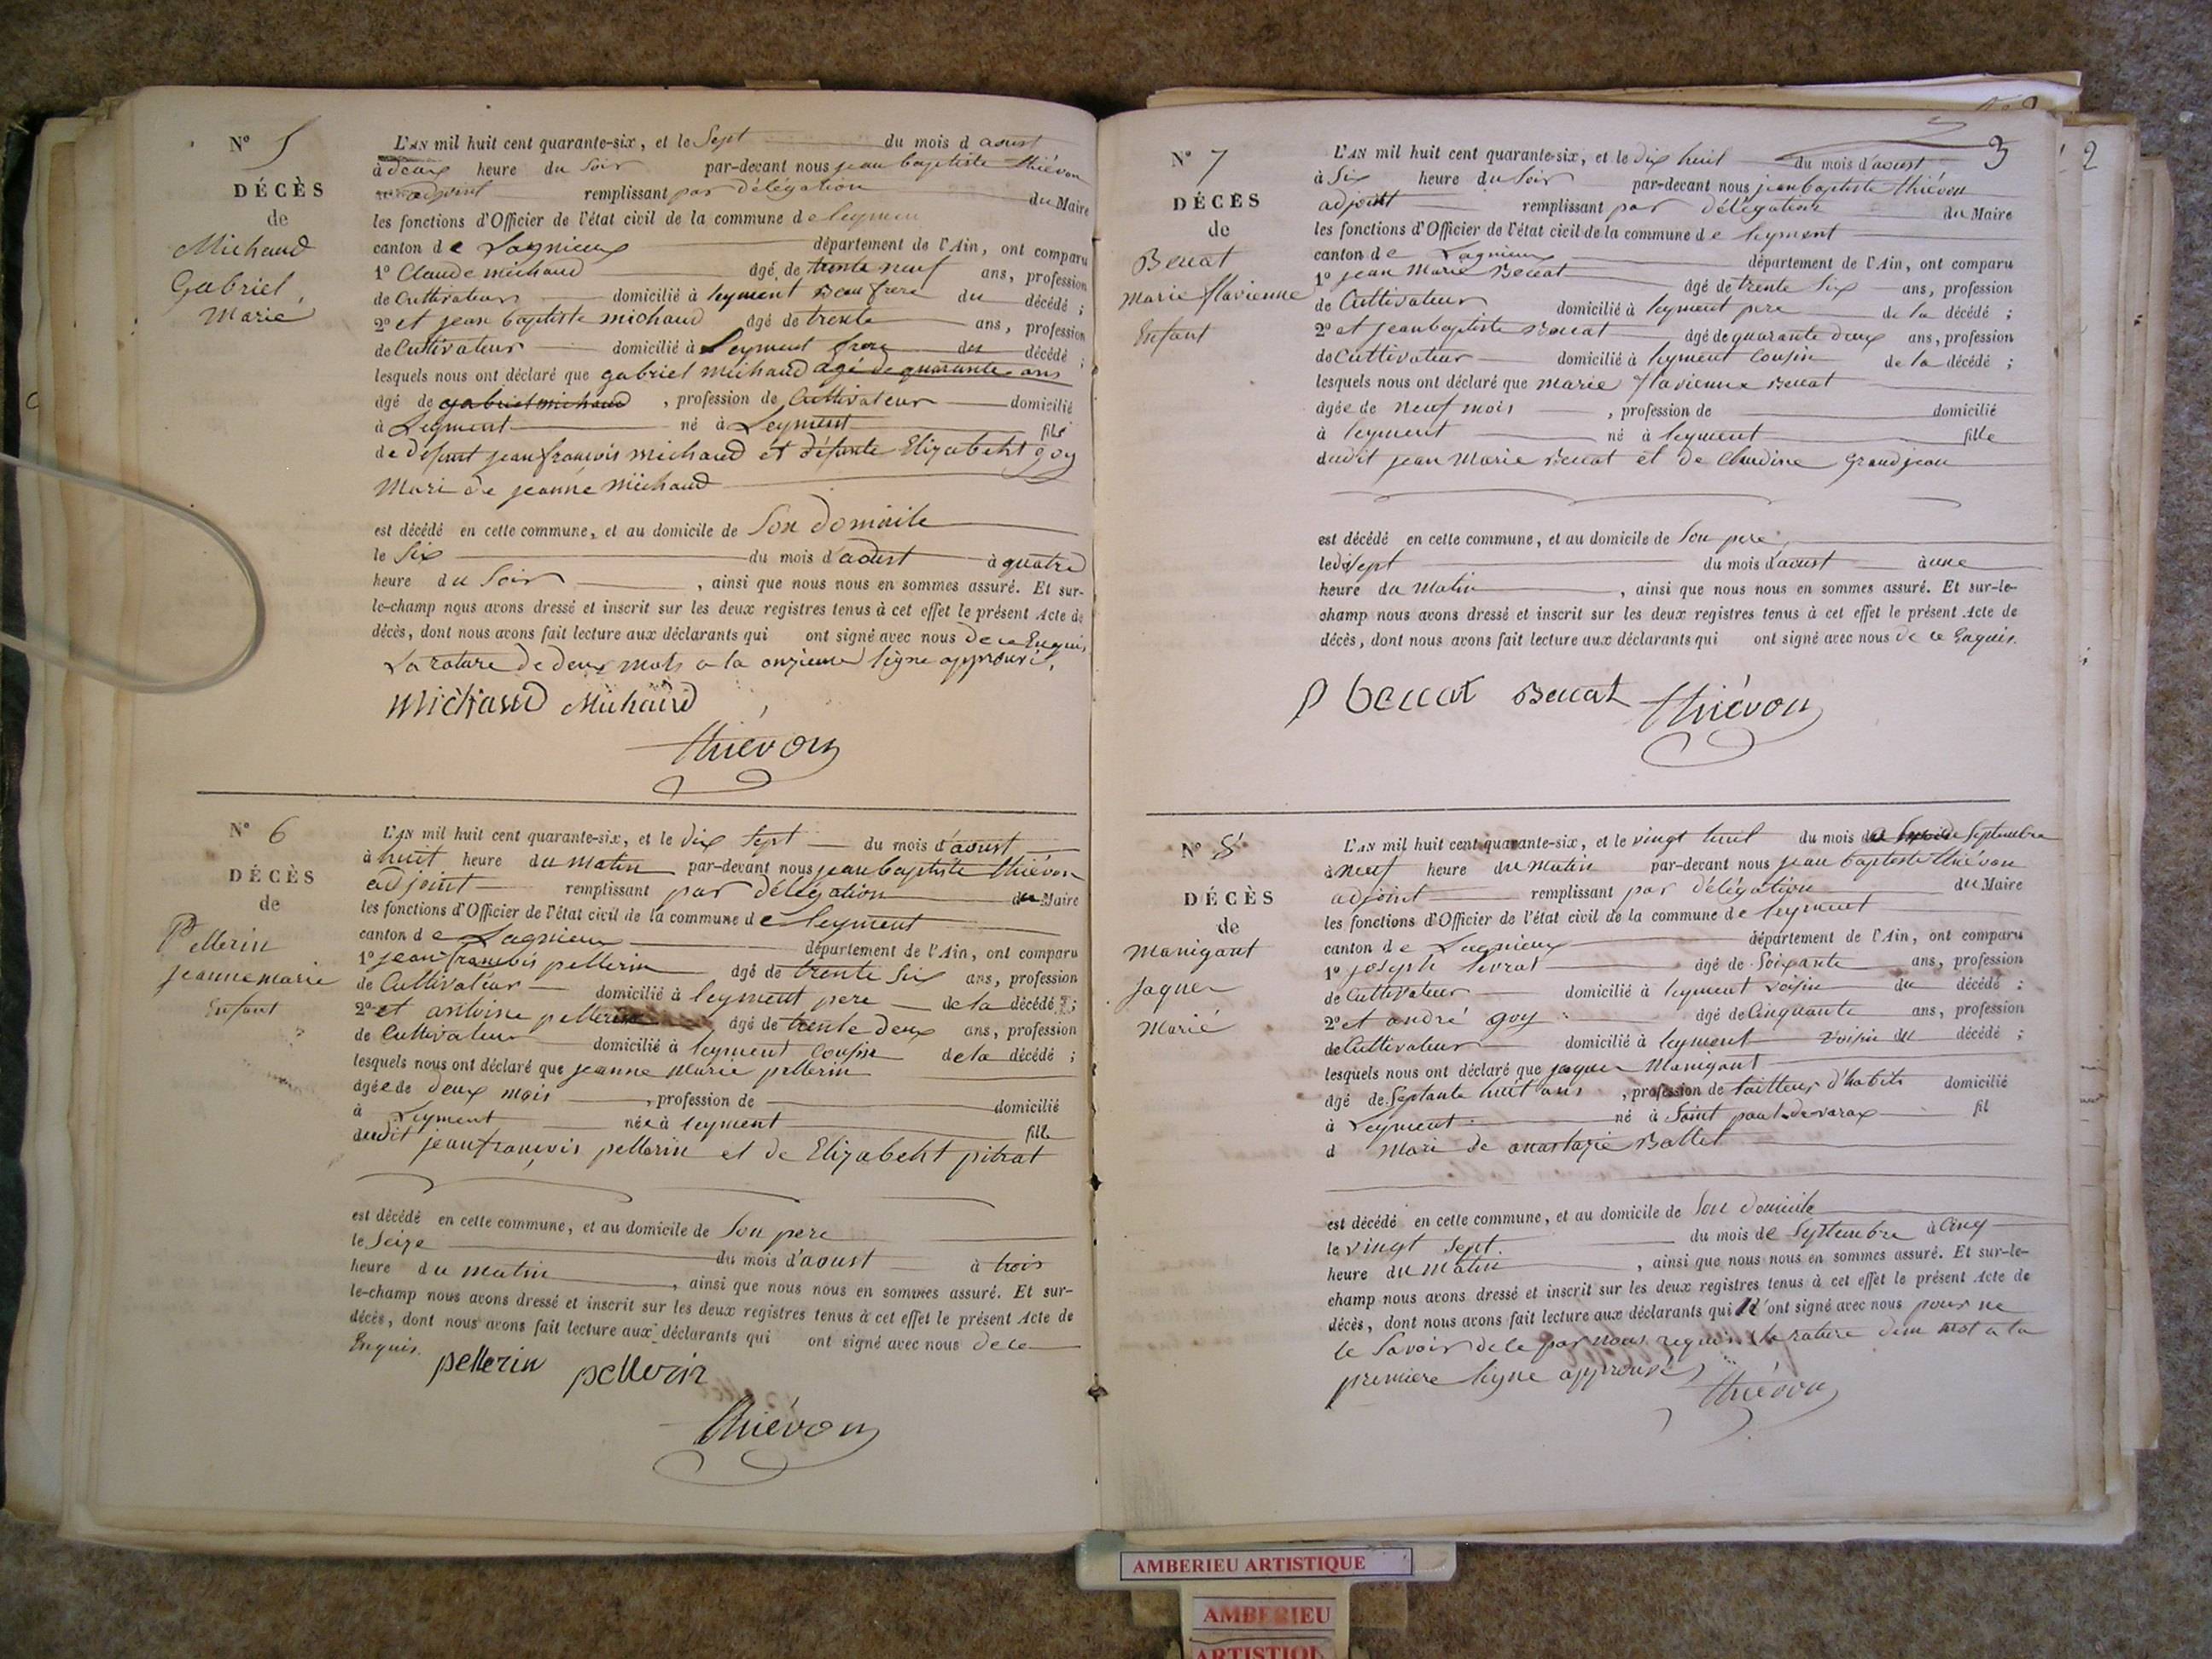 N° 5
DÉCÈS
de
Michaud
Gabriel,
Marié
L'AN mil huit cent quarante-six, et le Sept du mois d aoust
à deux heure du Soir par-devant nous jean baptiste thiévon
adjoint remplissant par délégation du Maire
les fonctions d'Officier de l'état civil de la commune de leyment
canton de Lagnieux département de l'Ain, ont comparu
1° Claude michaud âgé de trente neuf ans, profession
de Cultivateur domicilié à leyment Beau frere du décédé ;
2° et jean baptiste michaud âgé de trente ans, profession
de Cultivateur domicilié à Leyment frere du décédé ;
lesquels nous ont déclaré que gabriel michaud agé de quarante ans
âgé de gabriel michaud , profession de Cultivateur domicilié
à Leyment né à Leyment fils
de défunt jean françois michaud et défunte Elizabeht goy
Mari de jeanne michaud
est décédé en cette commune, et au domicile de Son domicile
le Six du mois d'aoust à quatre
heure du Soir , ainsi que nous nous en sommes assuré. Et sur-
le-champ nous avons dressé et inscrit sur les deux registres tenus à cet effet le présent Acte de
décès, dont nous avons fait lecture aux déclarants qui ont signé avec nous de ce Enquis,
La rature de deux mots a la onzieme ligne approuvé,
michaud Michaud
thiévon
N° 6
DÉCÈS
de
Pellerin
jeanne marie
Enfant
L'AN mil huit cent quarante-six, et le dix Sept du mois d'aoust
à huit heure du matin par-devant nous jean baptiste thiévon
adjoint remplissant par délégation du Maire
les fonctions d'Officier de l'état civil de la commune de leyment
canton de Lagnieux département de l'Ain, ont comparu
1° jean françois pellerin âgé de trente Six ans, profession
de Cultivateur domicilié à leyment pere de la décédé ;
2° et antoine pellerin âgé de trente deux ans, profession
de Cultivateur domicilié à leyment Cousin de la décédé ;
lesquels nous ont déclaré que jeanne Marie pellerin
âgée de deux mois , profession de domicilié
à Leyment née à leyment fille
dudit jean françois pellerin et de Elizabeht pitrat
est décédé en cette commune, et au domicile de Son pere
le Seize du mois d'aoust à trois
heure du matin , ainsi que nous nous en sommes assuré. Et sur-
le-champ nous avons dressé et inscrit sur les deux registres tenus à cet effet le présent Acte de
décès, dont nous avons fait lecture aux déclarants qui ont signé avec nous de ce
Enquis.
pellerin pellerin
thiévon
3
2
N° 7
DÉCÈS
de
Benat
marie flavienne
Enfant
L'AN mil huit cent quarante-six, et le dix huit du mois d'aoust
à Six heure du Soir par-devant nous jean baptiste thiévon
adjoint remplissant par délégation du Maire
les fonctions d'Officier de l'état civil de la commune de leyment
canton de Lagnieux département de l'Ain, ont comparu
1° jean Marie Benat âgé de trente Six ans, profession
de Cultivateur domicilié à leyment pere de la décédé ;
2° et jean baptiste Benat âgé de quarante deux ans, profession
de Cultivateur domicilié à leyment Cousin de la décédé ;
lesquels nous ont déclaré que marie flavienne Benat
âgée de neuf mois , profession de domicilié
à leyment né à leyment fille
dudit jean Marie Benat et de Claudine Grandjean
est décédé en cette commune, et au domicile de Son pere
le dixsept du mois d'aoust à une
heure du Matin , ainsi que nous nous en sommes assuré. Et sur-le-
champ nous avons dressé et inscrit sur les deux registres tenus à cet effet le présent Acte de
décès, dont nous avons fait lecture aux déclarants qui ont signé avec nous de ce Enquis.
benat Benat thiévon
N° 8
DÉCÈS
de
Manigant
Jaques
Marié
L'AN mil huit cent quarante-six, et le vingt huit du mois de Septembre
à neuf heure du Matin par-devant nous jean baptiste thiévon
adjoint remplissant par délégation du Maire
les fonctions d'Officier de l'état civil de la commune de leyment
canton de Lagnieux département de l'Ain, ont comparu
1° joseph levrat âgé de Soixante ans, profession
de Cultivateur domicilié à leyment voisin du décédé ;
2° et andré goy âgé de Cinquante ans, profession
de Cultivateur domicilié à leyment voisin du décédé ;
lesquels nous ont déclaré que jaques Manigant
âgé de Septante huit ans , profession de tailleur d'habits domicilié
à Leyment né à Saint paul de varax fil
d Mari de anastazie Ballet
est décédé en cette commune, et au domicile de Son domicile
le vingt Sept. du mois de Septembre à Cinq
heure du Matin , ainsi que nous nous en sommes assuré. Et sur-le-
champ nous avons dressé et inscrit sur les deux registres tenus à cet effet le présent Acte de
décès, dont nous avons fait lecture aux déclarants qui n'ont signé avec nous pour ne
le Savoir de ce par nous requis. la rature d'un mot a la
premiere ligne approuvé
thiévon
AMBERIEU ARTISTIQUE
AMBERIEU
ARTISTIQUE